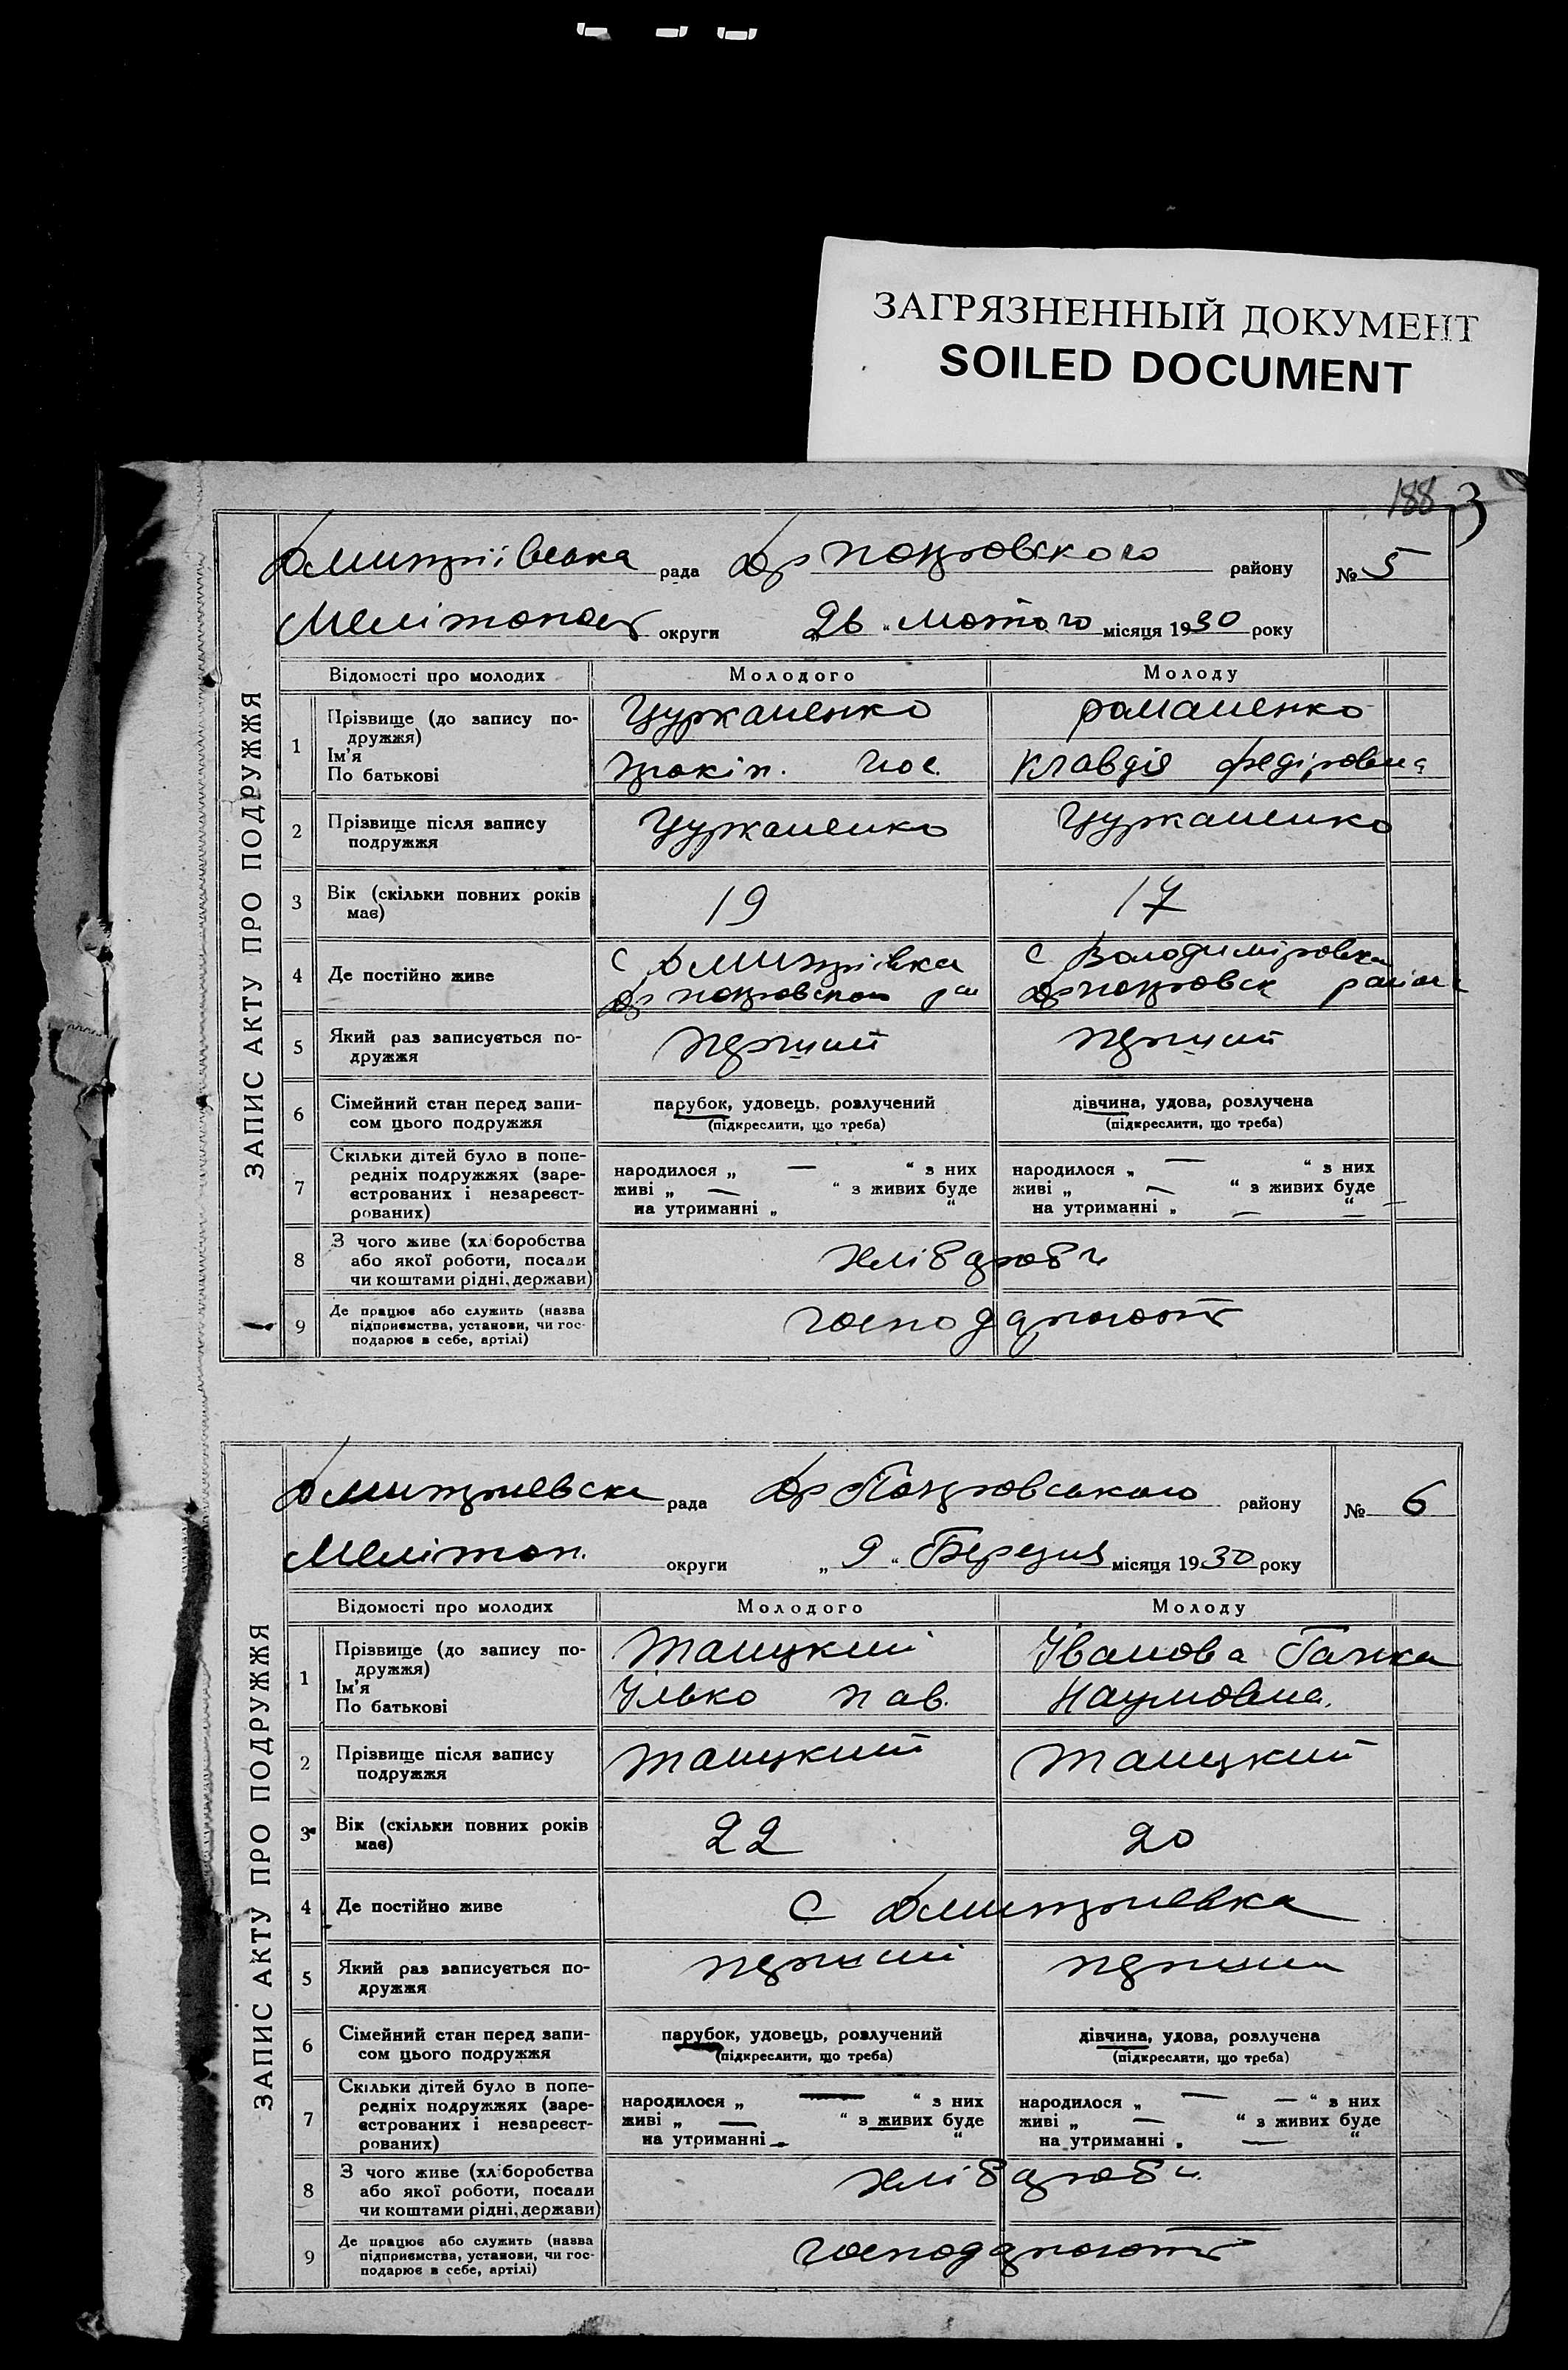 ЗАГРЯЗНЕННЫЙ ДОКУМЕНТ
SOILED DOCUMENT
188 3
ЗАПИС АКТУ ПРО ПОДРУЖЖЯ
Дмитріївська рада Др Покровского району № 5
Мелітопол округи „26“ Лютого місяця 1930 року
Відомості про молодих Молодого Молоду
1 Прізвище (до запису по-
дружжя)
Ім'я
По батькові
Цуркаменко Романенко
Прокіп. Клавдія Федіровна
2 Прізвище після запису
подружжя
Цуркаменко Цуркаменко
3 Вік (скільки повних років
має)
19 17
4 Де постійно живе
с Дмитрівка с Володиміровка
Др покровском Др покровск району
5 Який раз записується по-
дружжя
перший перший
6 Сімейний стан перед запи-
сом цього подружжя
парубок, удовець, розлучений дівчина, удова, розлучена
(підкреслити, що треба) (підкреслити, що треба)
7 Скільки дітей було в попе-
редніх подружжях (заре-
єстрованих і незареєст-
рованих)
народилося „ — “ з них народилося „ — “ з них
живі „ — “ з живих буде живі „ — “ з живих буде
на утриманні „ “ на утриманні „ — “
8 З чого живе (хліборобства
або якої роботи, посади
чи коштами рідні, держави)
хліборобы
9 Де працює або служить (назва
підприємства, установи, чи гос-
подарює в себе, артілі)
господарюют
ЗАПИС АКТУ ПРО ПОДРУЖЖЯ
Дмитриевска рада Др Покровського району № 6
Мелітоп. округи „9“ Березня місяця 1930 року
Відомості про молодих Молодого Молоду
1 Прізвище (до запису по-
дружжя)
Ім'я
По батькові
Таицкий Іванова Ганка
Ілько пав. Наумовна.
2 Прізвище після запису
подружжя
Таицкий Таицкий
3 Вік (скільки повних років
має)
22 20
4 Де постійно живе
с Дмитриевка
5 Який раз записується по-
дружжя
перший перший
6 Сімейний стан перед запи-
сом цього подружжя
парубок, удовець, розлучений дівчина, удова, розлучена
(підкреслити, що треба) (підкреслити, що треба)
7 Скільки дітей було в попе-
редніх подружжях (заре-
єстрованих і незареєст-
рованих)
народилося „ — “ з них народилося „ — “ з них
живі „ — “ з живих буде живі „ — “ з живих буде
на утриманні „ “ на утриманні „ — “
8 З чого живе (хліборобства
або якої роботи, посади
чи коштами рідні, держави)
хліборобы
9 Де працює або служить (назва
підприємства, установи, чи гос-
подарює в себе, артілі)
господарюют